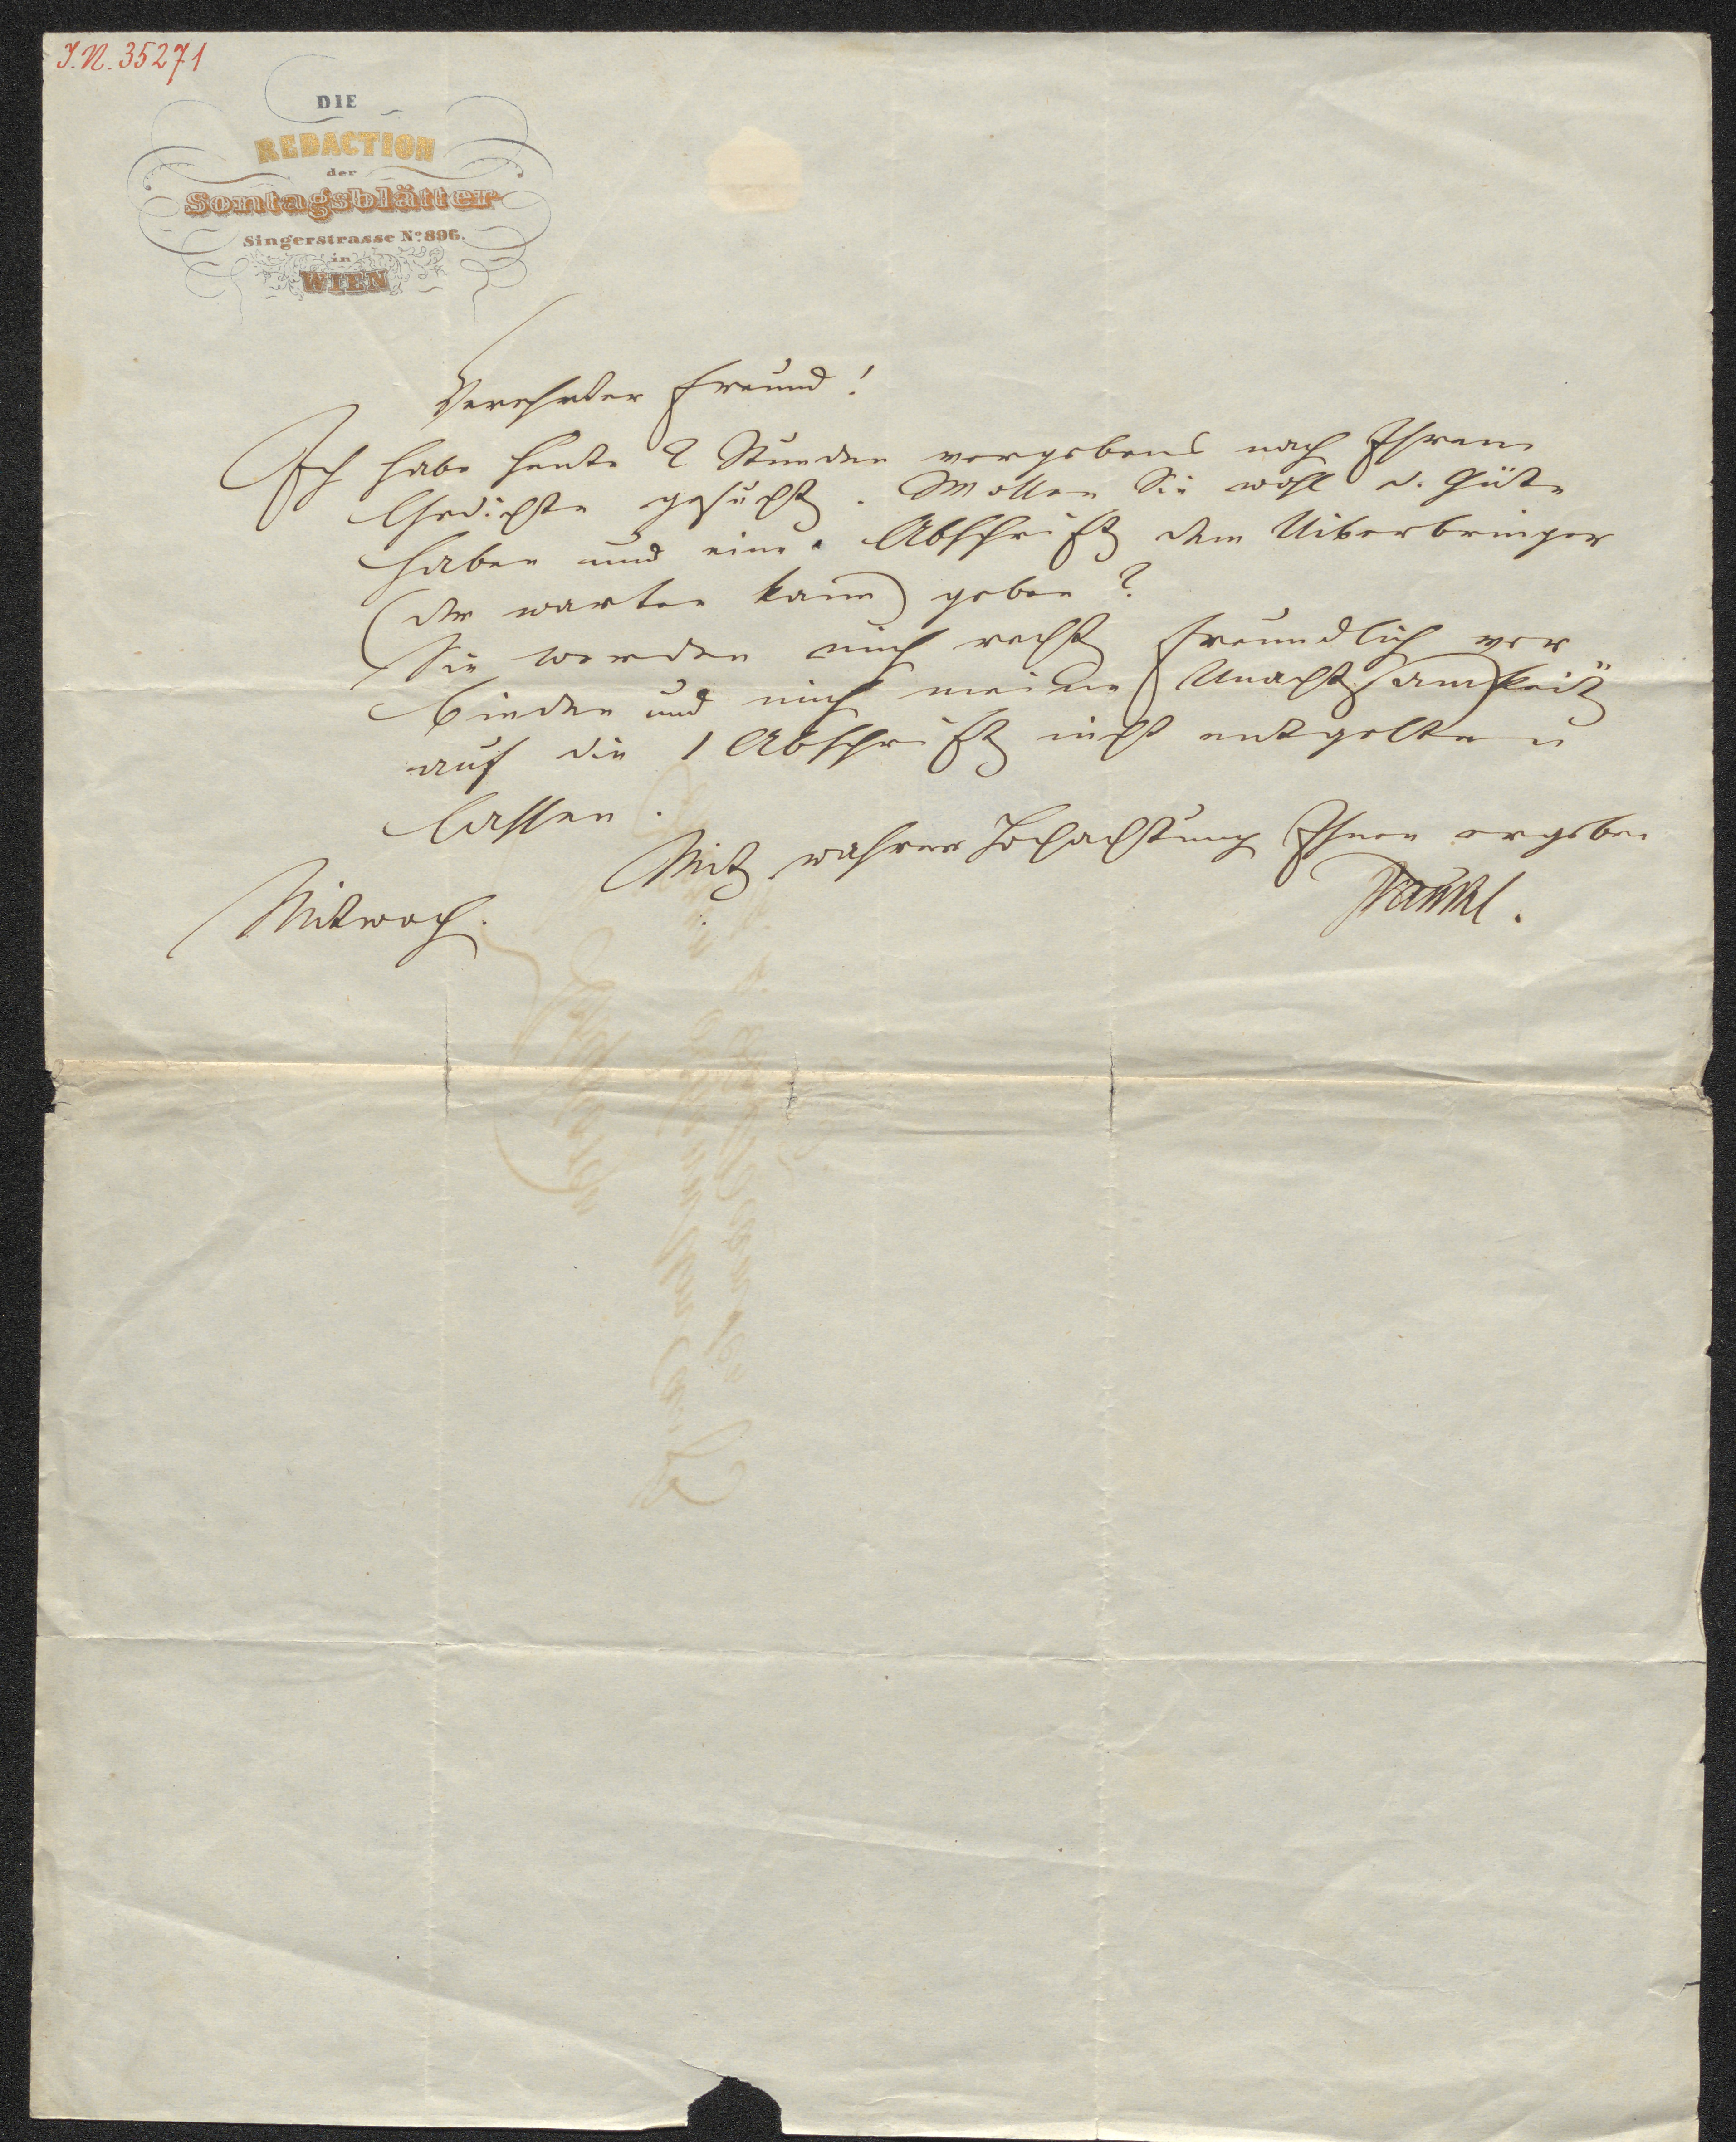 I.N. 35271
DIE
REDACTION
der
Sontagsblätter
Singerstrasse No. 896.
in
WIEN
Verehrter Freund!
Ich habe heute 2 Stunden vergebens nach Ihrem
Gedichte gesucht. Wollen Sie wohl d. Güte
haben und eine Abschrift dem Uiberbringer
(der warten kann) geben?
Sie werden mich recht freundlich ver
binden und mich meine Unachtsamkeit
auf die 1 Abschrift nicht entgelten
lassen.
Mit wahrer Hochachtung Ihnen ergeben
Frankl.
Mitwoch.